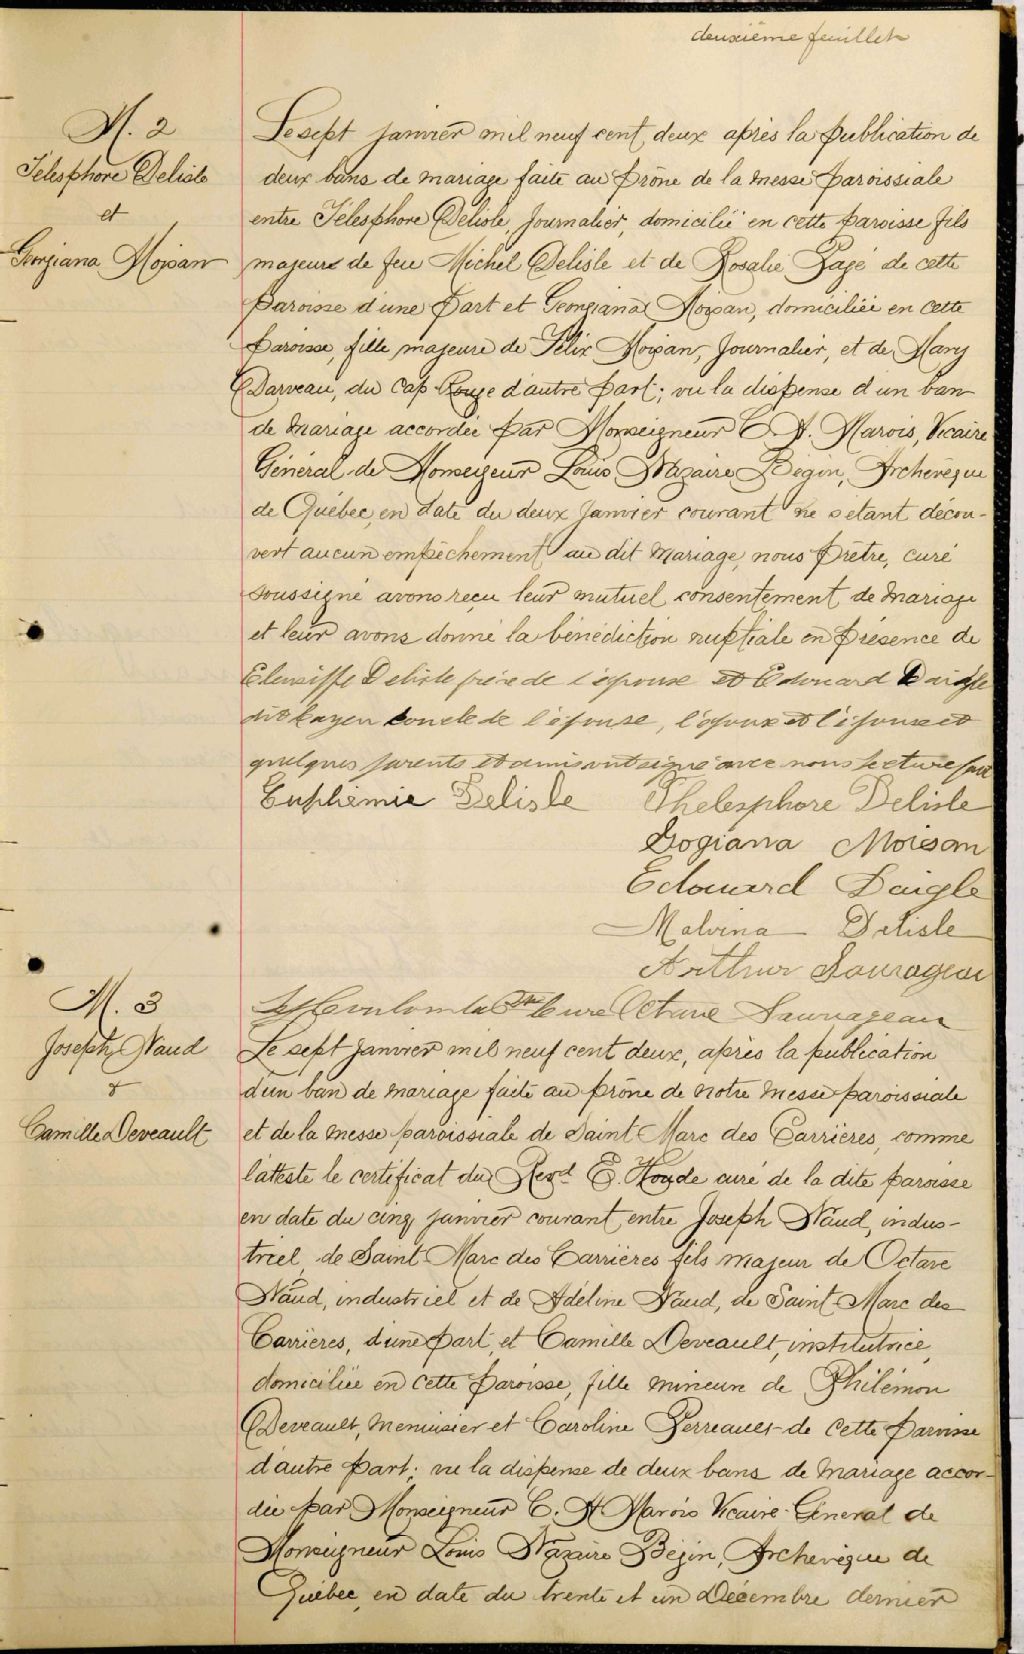 deuxième feuillet
M. 2
Télesphore Delisle
et
Georgiana Moisan
Le sept janvier mil neuf cent deux après la publication de
deux bans de mariage faite au prône de la messe paroissiale
entre Télesphore Delisle, journalier, domicilié en cette paroisse fils
majeur de feu Michel Delisle et de Rosalie Pagé de cette
paroisse d'une part et Georgiana Moisan, domiciliée en cette
paroisse, fille majeure de Félix Moisan, journalier, et de Mary
Darveau, du Cap Rouge d'autre part; vu la dispense d'un ban
de mariage accordée par Monseigneur C. A. Marois, Vicaire
Général de Monseigneur Louis Nazaire Bégin, Archevêque
de Québec, en date du deux janvier courant ne s'étant décou-
vert aucun empêchement au dit mariage, nous prêtre, curé
soussigné avons reçu leur mutuel consentement de mariage
et leur avons donné la bénédiction nuptiale en présence de
Delisle frère de l'époux et Edouard Daigle
oncle de l'épouse, l'époux et l'épouse et
quelques parents et amis ont signé avec nous lecture faite
Euphémie Delisle Thelesphore Delisle
Gogiana Moisan
Edouard Daigle
Malvina Delisle
Arthur Sauvageau
Octave Sauvageau
M. 3
Joseph Naud
&
Camille Deveault
Le sept janvier mil neuf cent deux, après la publication
d'un ban de mariage faite au prône de notre messe paroissiale
et de la messe paroissiale de Saint Marc des Carrières, comme
l'atteste le certificat du Revd E. Houde curé de la dite paroisse
en date du cinq janvier courant, entre Joseph Naud, indus-
triel, de Saint Marc des Carrières fils majeur de Octave
Naud, industriel et de Adéline Naud, de Saint Marc des
Carrières, d'une part, et Camille Deveault, institutrice,
domiciliée en cette paroisse, fille mineure de Philémon
Deveault, menuisier et Caroline Perreault de cette paroisse
d'autre part; vu la dispense de deux bans de mariage accor-
dée par Monseigneur C. A. Marois Vicaire-Général de
Monseigneur Louis Nazaire Begin, Archevêque de
Québec, en date du trente et un Décembre dernier